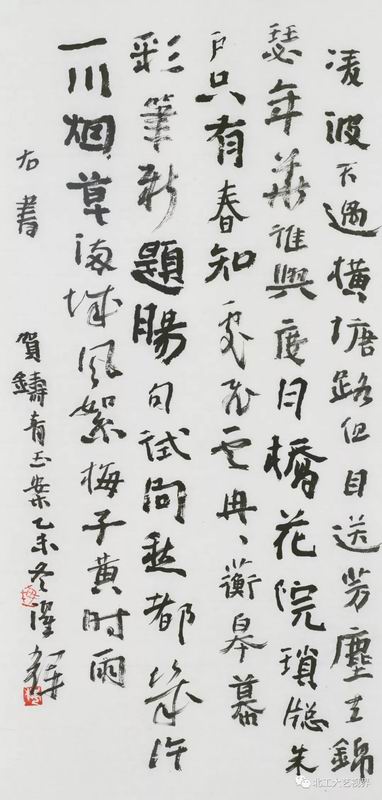 凌波不過橫塘路但目送芳塵去錦
瑟年華誰與度月橋花院瑣窗朱
户只有春知處飛雲冉、蘅皋暮
彩筆新題腸句試問愁都幾许
一川烟草滿城風絮梅子黄时雨
右書
賀鑄青玉案乙未冬
北工大艺视界